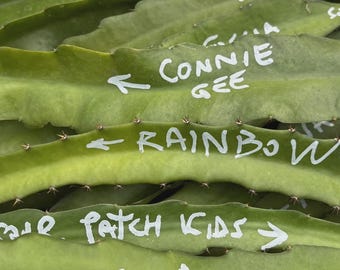 ← CONNIE
GEE
← RAINBOW
PATCH KIDS →